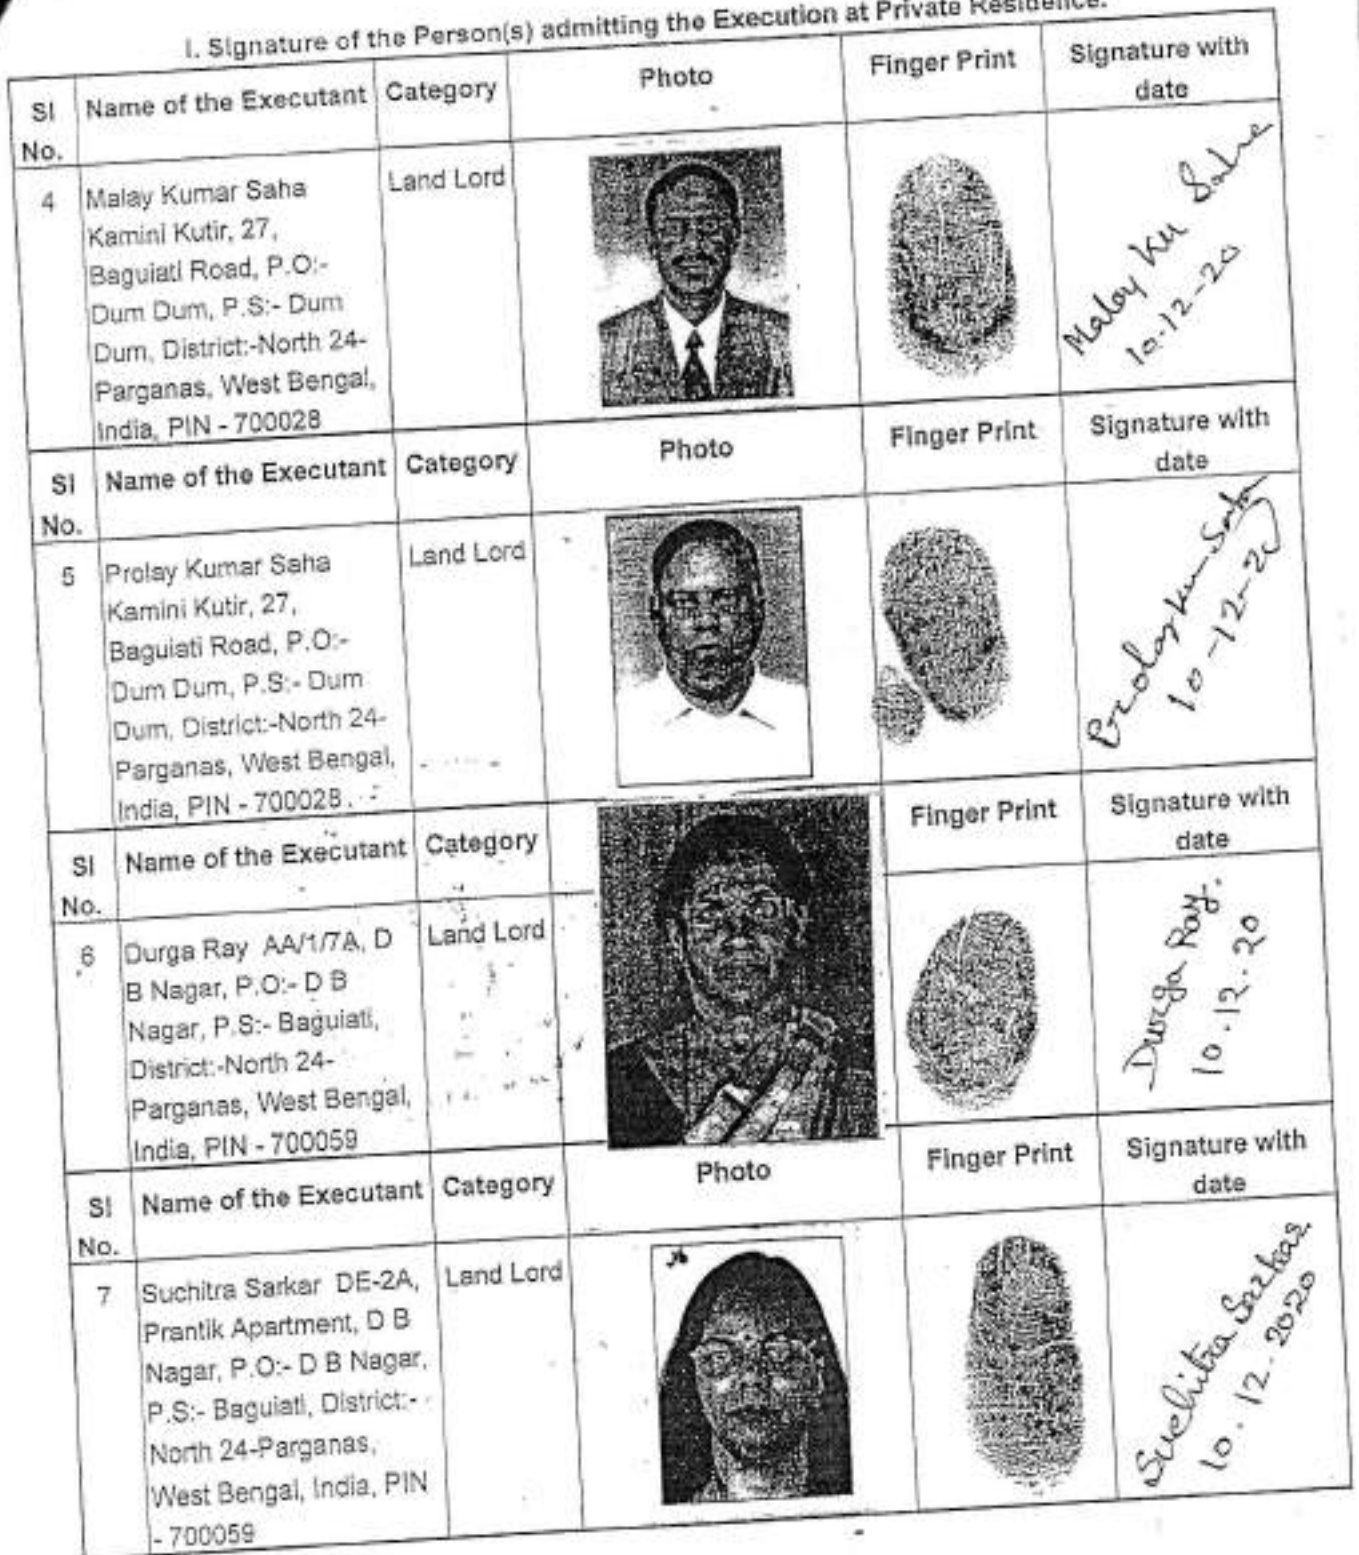 I. Signature of the Person(s) admitting the Execution at Private Residence.
Sl No. Name of the Executant Category Photo Finger Print Signature with date
4 Malay Kumar Saha Land Lord
Kamini Kutir, 27,
Baguiati Road, P.O:-
Dum Dum, P.S:- Dum
Dum, District:-North 24-
Parganas, West Bengal,
India, PIN - 700028
Malay Ku Saha
10-12-20
Sl No. Name of the Executant Category Photo Finger Print Signature with date
5 Prolay Kumar Saha Land Lord
Kamini Kutir, 27,
Baguiati Road, P.O:-
Dum Dum, P.S:- Dum
Dum, District:-North 24-
Parganas, West Bengal,
India, PIN - 700028
Prolay Kum Saha
10-12-20
Sl No. Name of the Executant Category Finger Print Signature with date
6 Durga Ray AA/1/7A, D Land Lord
B Nagar, P.O:- D B
Nagar, P.S:- Baguiati,
District:-North 24-
Parganas, West Bengal,
India, PIN - 700059
Durga Ray.
10.12.20
Sl No. Name of the Executant Category Photo Finger Print Signature with date
7 Suchitra Sarkar DE-2A, Land Lord
Prantik Apartment, D B
Nagar, P.O:- D B Nagar,
P.S:- Baguiati, District:-
North 24-Parganas,
West Bengal, India, PIN
- 700059
Suchitra Sarkar
10.12.2020